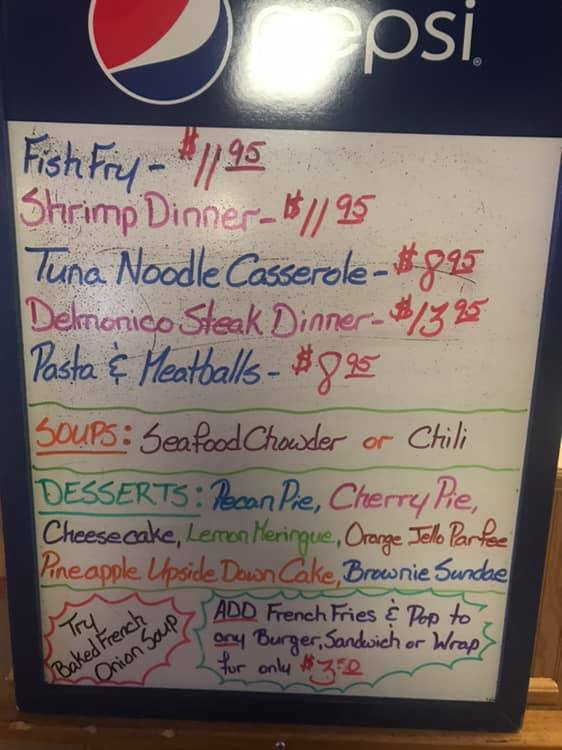 pepsi®
Fish Fry - $11.95
Shrimp Dinner - $11.95
Tuna Noodle Casserole - $8.95
Delmonico Steak Dinner - $13.95
Pasta & Meatballs - $8.95
SOUPS: Seafood Chowder or Chili
DESSERTS: Pecan Pie, Cherry Pie,
Cheesecake, Lemon Meringue, Orange Jello Parfee
Pineapple Upside Down Cake, Brownie Sundae
Try
Baked French
Onion Soup
ADD French Fries & Pop to
any Burger, Sandwich or Wrap
for only $3.50